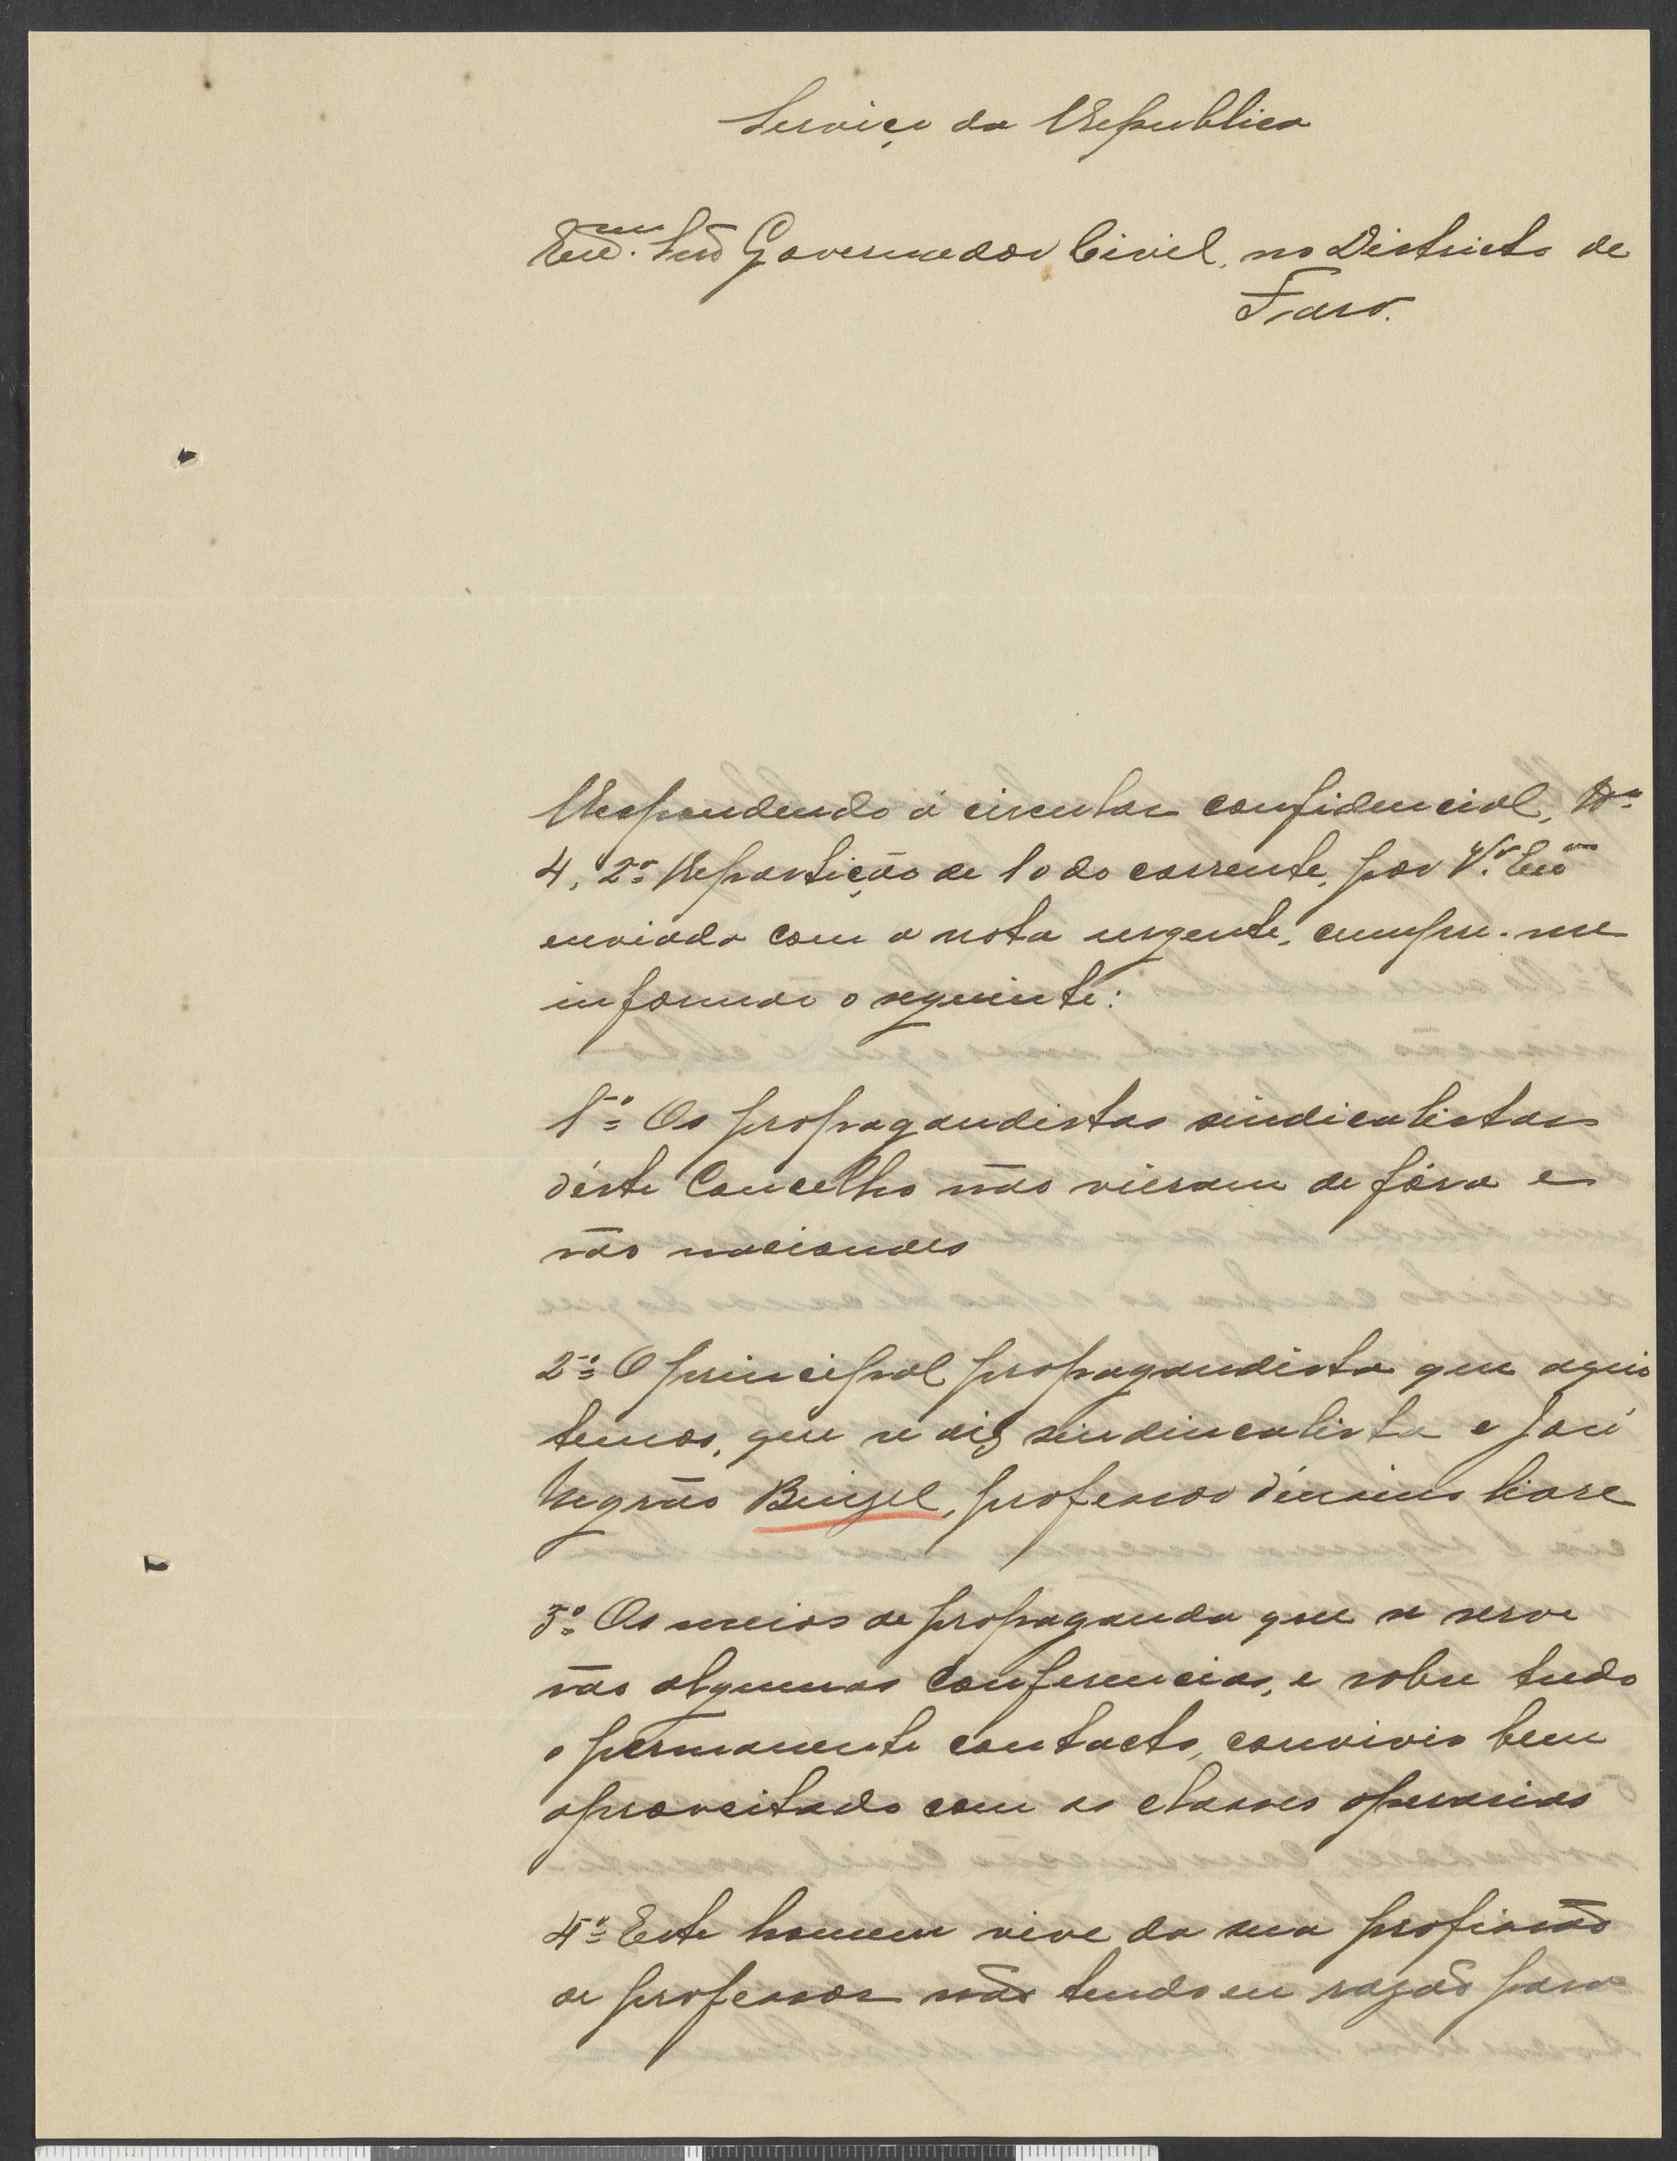 Serviço da Republica
Exmo. Snr Governador Civil, no Districto de
Faro.
Respondendo á circular confidencial, Nº
4, 2ª Repartição de 10 do corrente, por Vª Exª
enviada com a nota urgente, cumpre-me
informar o seguinte:
1º Os propagandistas sindicalistas
déste Concelho não vieram de fóra e
são nacionaes
2º O principal propagandista que aqui
temos, que se diz sindincalista e José
Negrão Buisel, professor d'ensino livre
3º Os meios de propaganda que se serve
são algumas Conferencias, e sobre tudo
o permanente contacto, convivio bem
aproveitado com as classes operarias
4º Este homem vive da sua profissão
de professor não tendo eu razão para